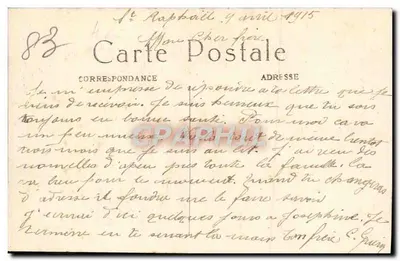 St Raphaël 9 avril 1915
83
Mon Cher frère
Carte Postale
CORRESPONDANCE
ADRESSE
Je m'empresse de repondre a ta lettre que je
viens de recevoir. Je suis heureux que tu sois
toujours en bonne santé. Pour moi ca va
un peu mieux
mois que je suis au lit. J'ai reçu des
nouvelles d'a peu pres toute la famille. Ca
va bien pour le moment. quand tu changeras
d'adresse il faudra me le faire savoir
J'ecrirai d'ici quelques jours a Josephine. Je
termine en te serrant la main ton frère